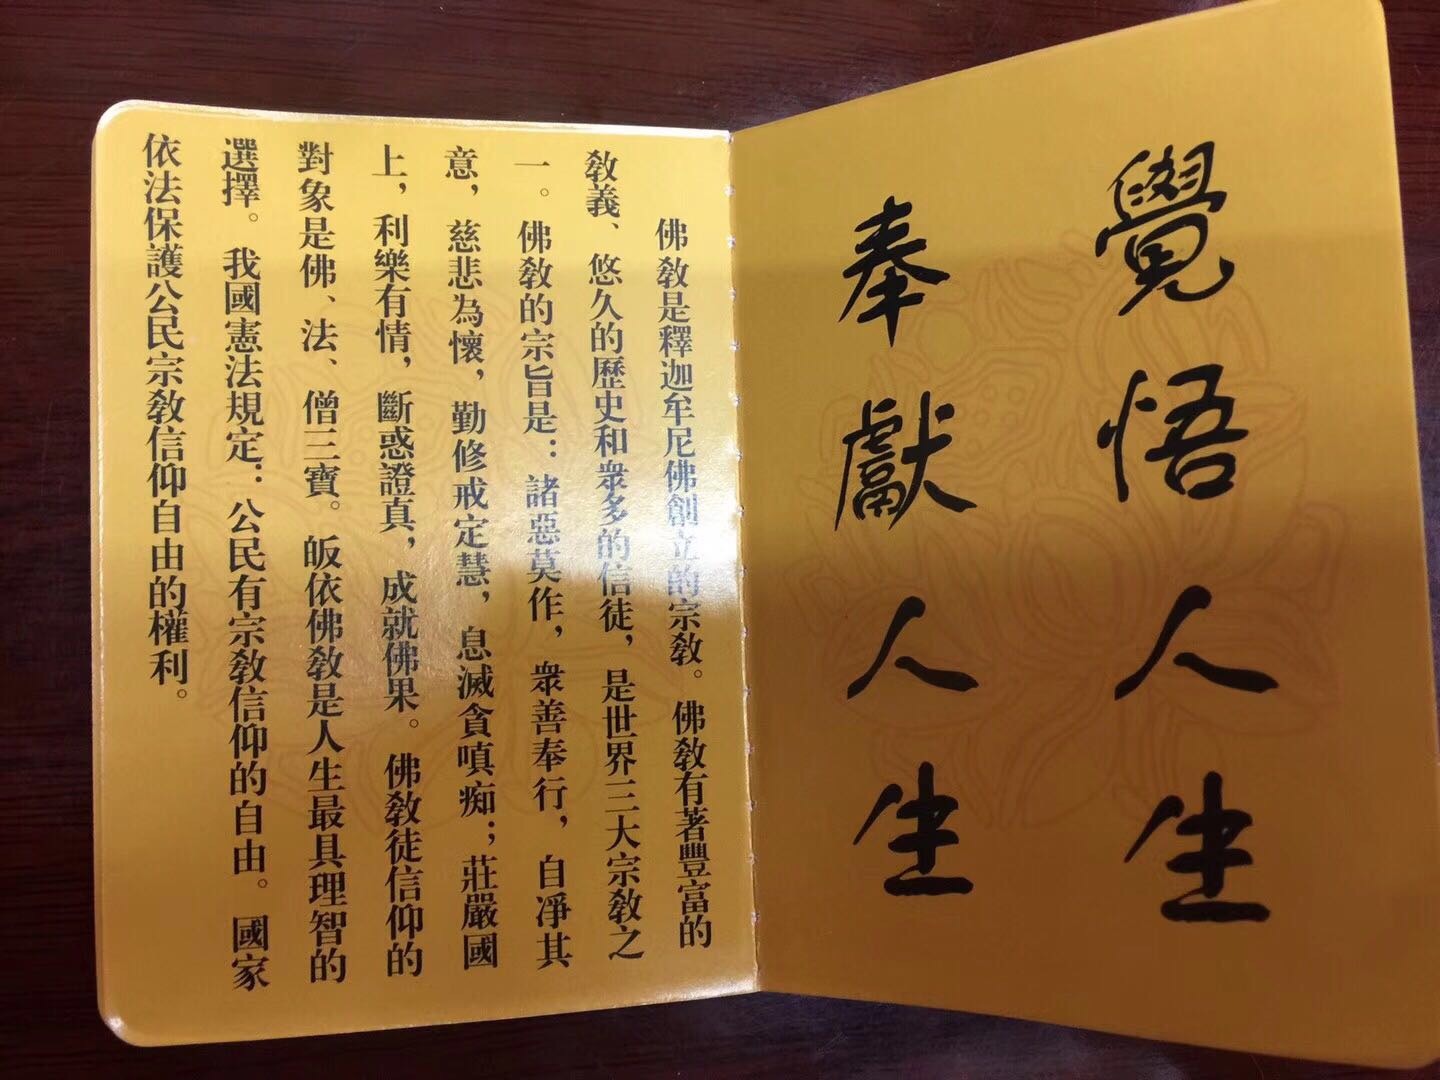 覺悟人生
奉獻人生
佛教是釋迦牟尼佛創立的宗教。佛教有著豐富的
教義、悠久的歷史和衆多的信徒，是世界三大宗教之
一。佛教的宗旨是：諸惡莫作，衆善奉行，自凈其
意，慈悲為懷，勤修戒定慧，息滅貪嗔痴；莊嚴國
上，利樂有情，斷惑證真，成就佛果。佛教徒信仰的
對象是佛、法、僧三寶。皈依佛教是人生最具理智的
選擇。我國憲法規定：公民有宗教信仰的自由。國家
依法保護公民宗教信仰自由的權利。